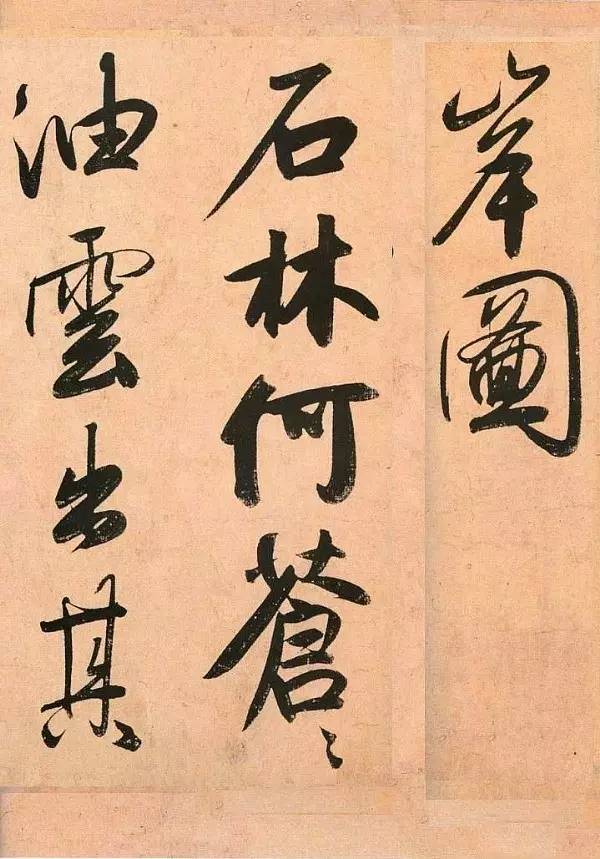 岸圖
石林何蒼〻
油雲出其